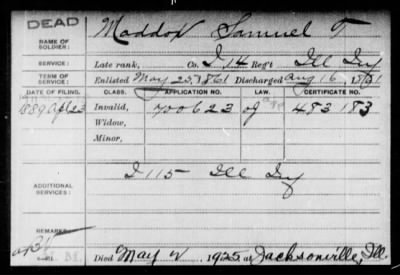 DEAD
NAME OF SOLDIER: Maddox Samuel T
SERVICE: Late rank, Co. I 14 Reg't Ill Inf
TERM OF SERVICE: Enlisted May 25, 1861 Discharged Aug 16, 1861
DATE OF FILING. CLASS. APPLICATION NO. LAW. CERTIFICATE NO.
1889 Apl 23 Invalid, 700623 483183
Widow,
Minor,
ADDITIONAL SERVICES: I 115 Ill Inf
REMARKS:
Died May 2, 1925 at Jacksonville, Ill.